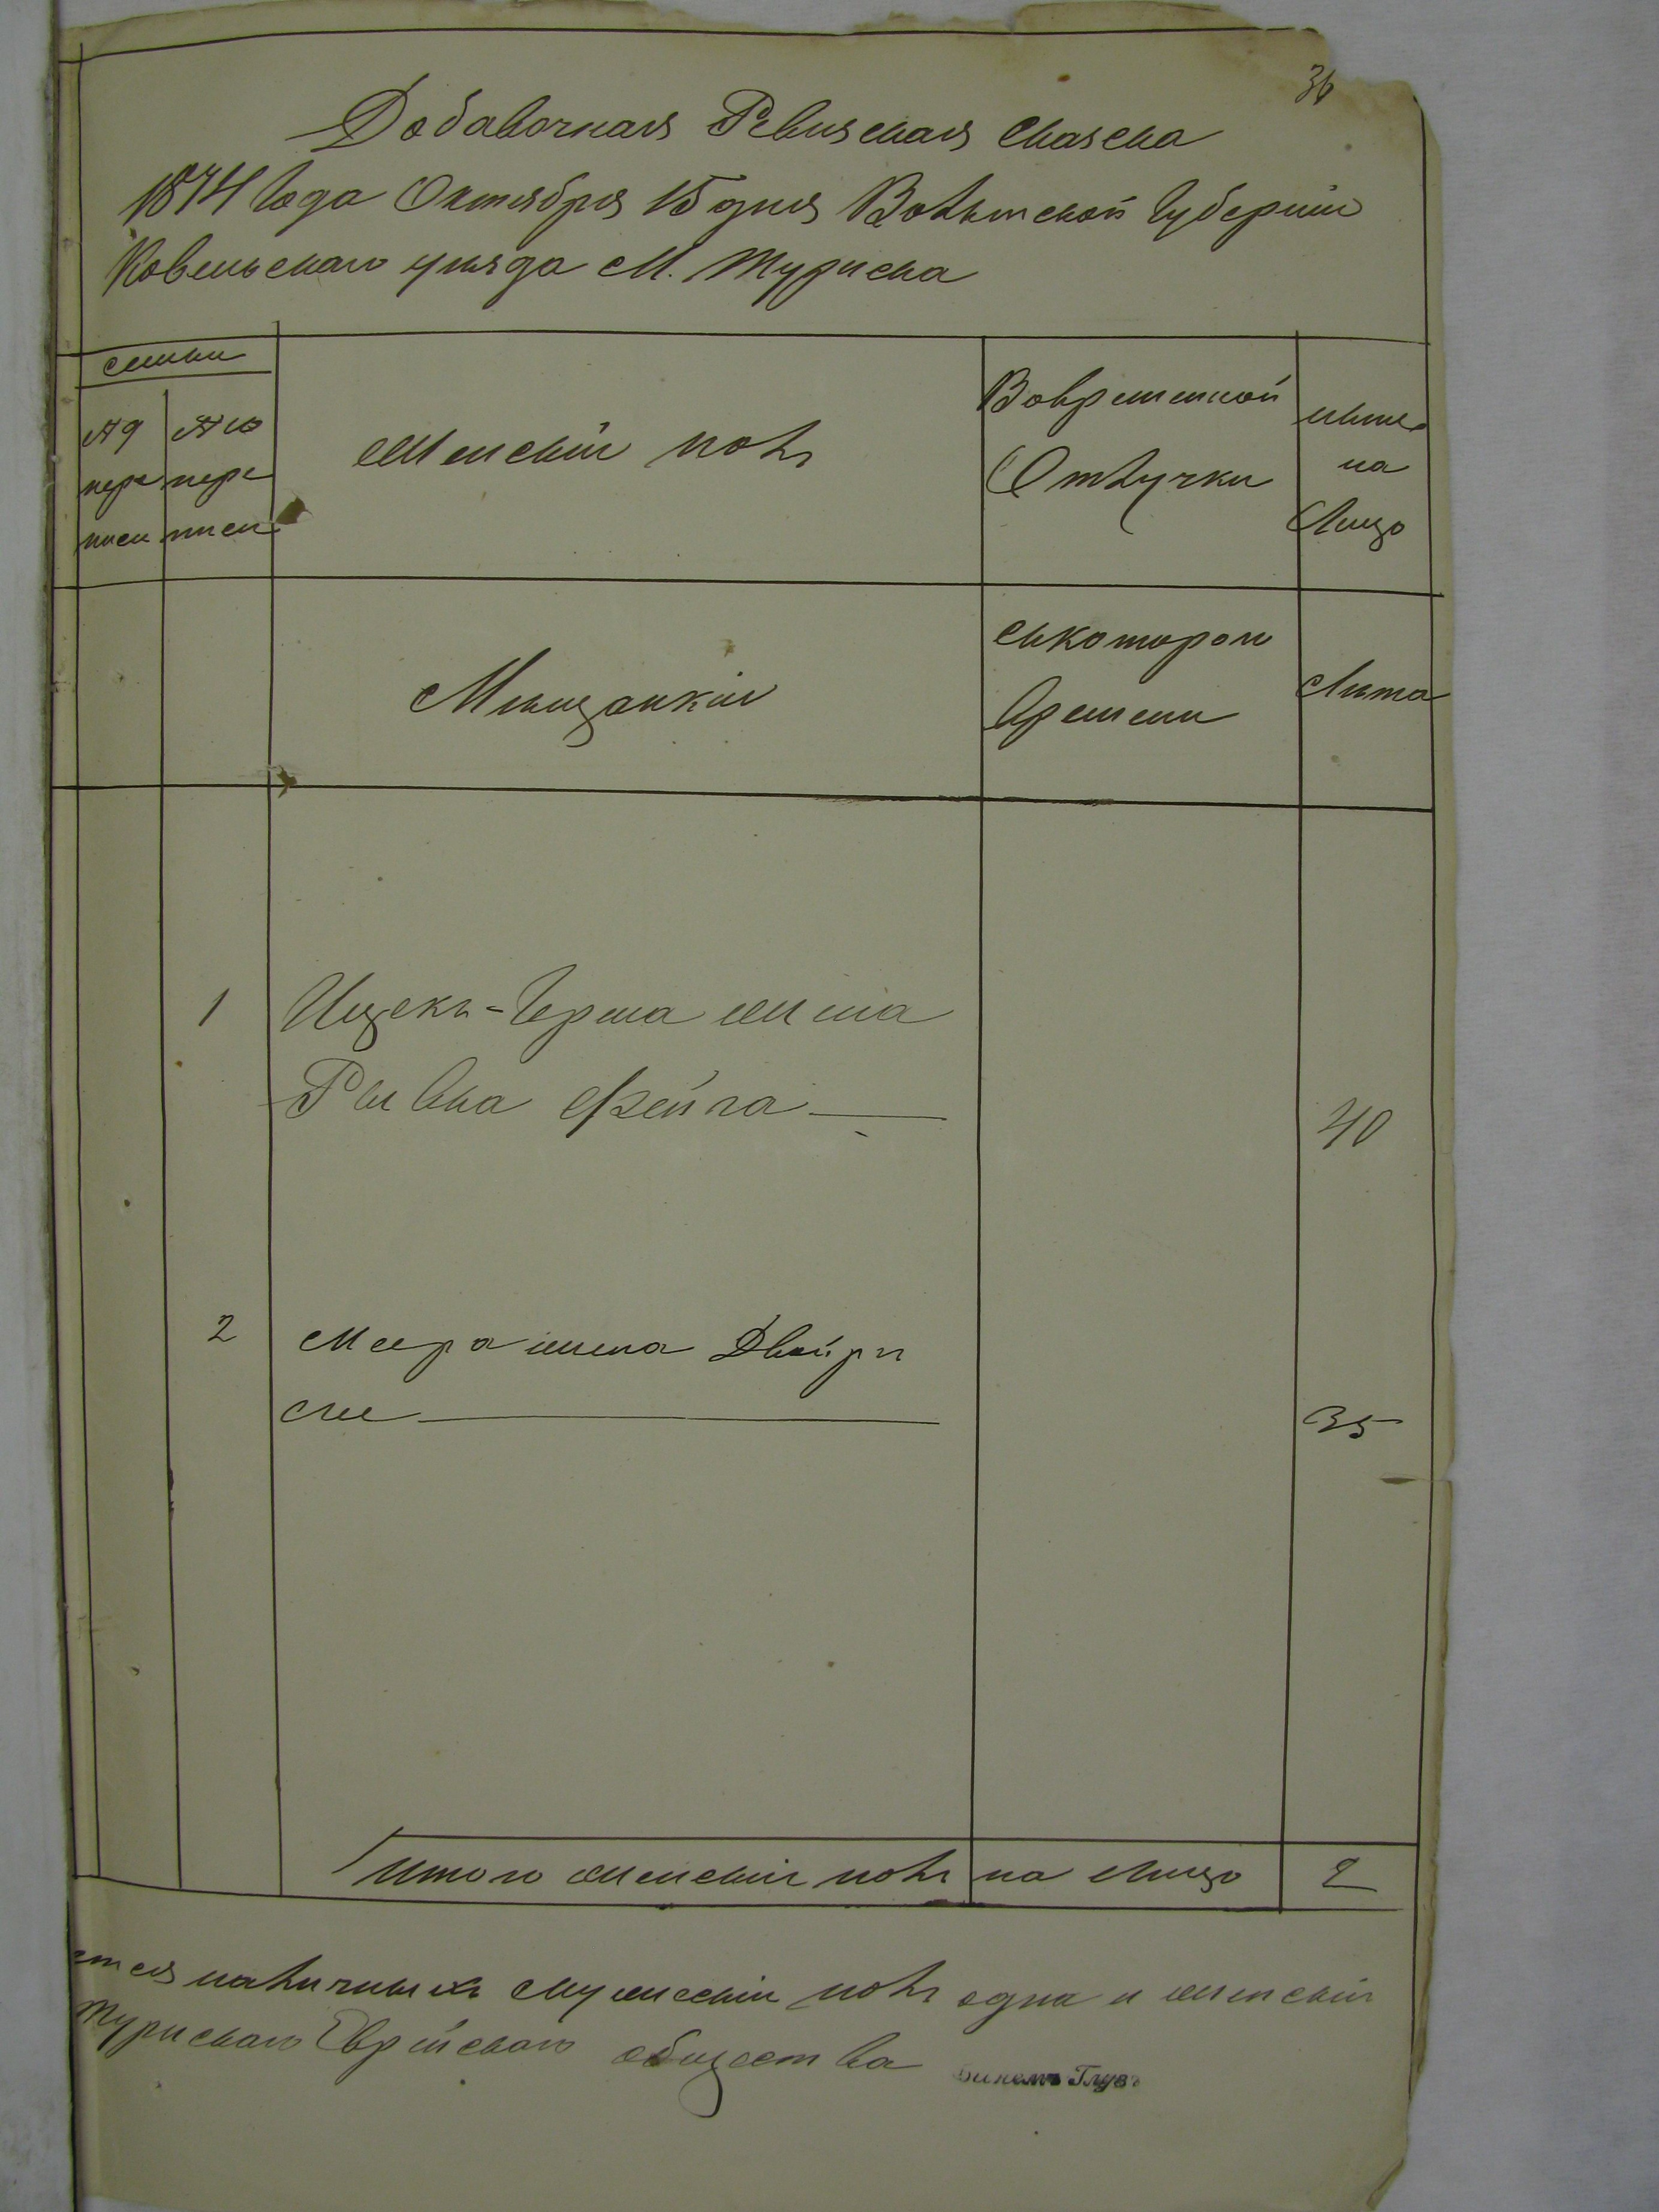 36
Добавочная Ревизская Сказска
1874 Года Октября 15 дня Волынской Губернии
Ковельского уѣзда М. Туриска
семьи
№ 9 переписи
№ 10 переписи
Женскiй полъ
Вовременной
Отлучки
ныне
на
Лицо
Мѣщанкiи
съкоторого
Времени
Лѣта
1
Ицекъ-Герша жена
Рывка Фейга
40
2
Меера жена Двойра
35
Итого женскiй полъ на Лицо 2
наличныхъ мужескiй полъ одна и женскiй
Турискаго Еврейскаго общества